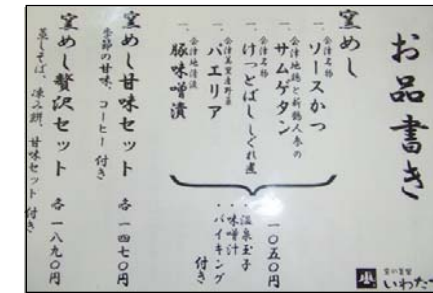 お品書き
窯めし
一、会津名物
ソースかつ
一、会津地鶏と新鶴人参の
サムゲタン
一、会津名物
けっとばししぐれ煮
一、会津美里産野菜
パエリア
一、会津地酒
豚味噌漬
一〇五〇円
・温泉玉子
・味噌汁
・バイキング
付き
窯めし甘味セット 各 一四七〇円
季節の甘味、コーヒー付き
窯めし贅沢セット 各 一八九〇円
蒸しそば、凍み餅、甘味セット付き
いわたて